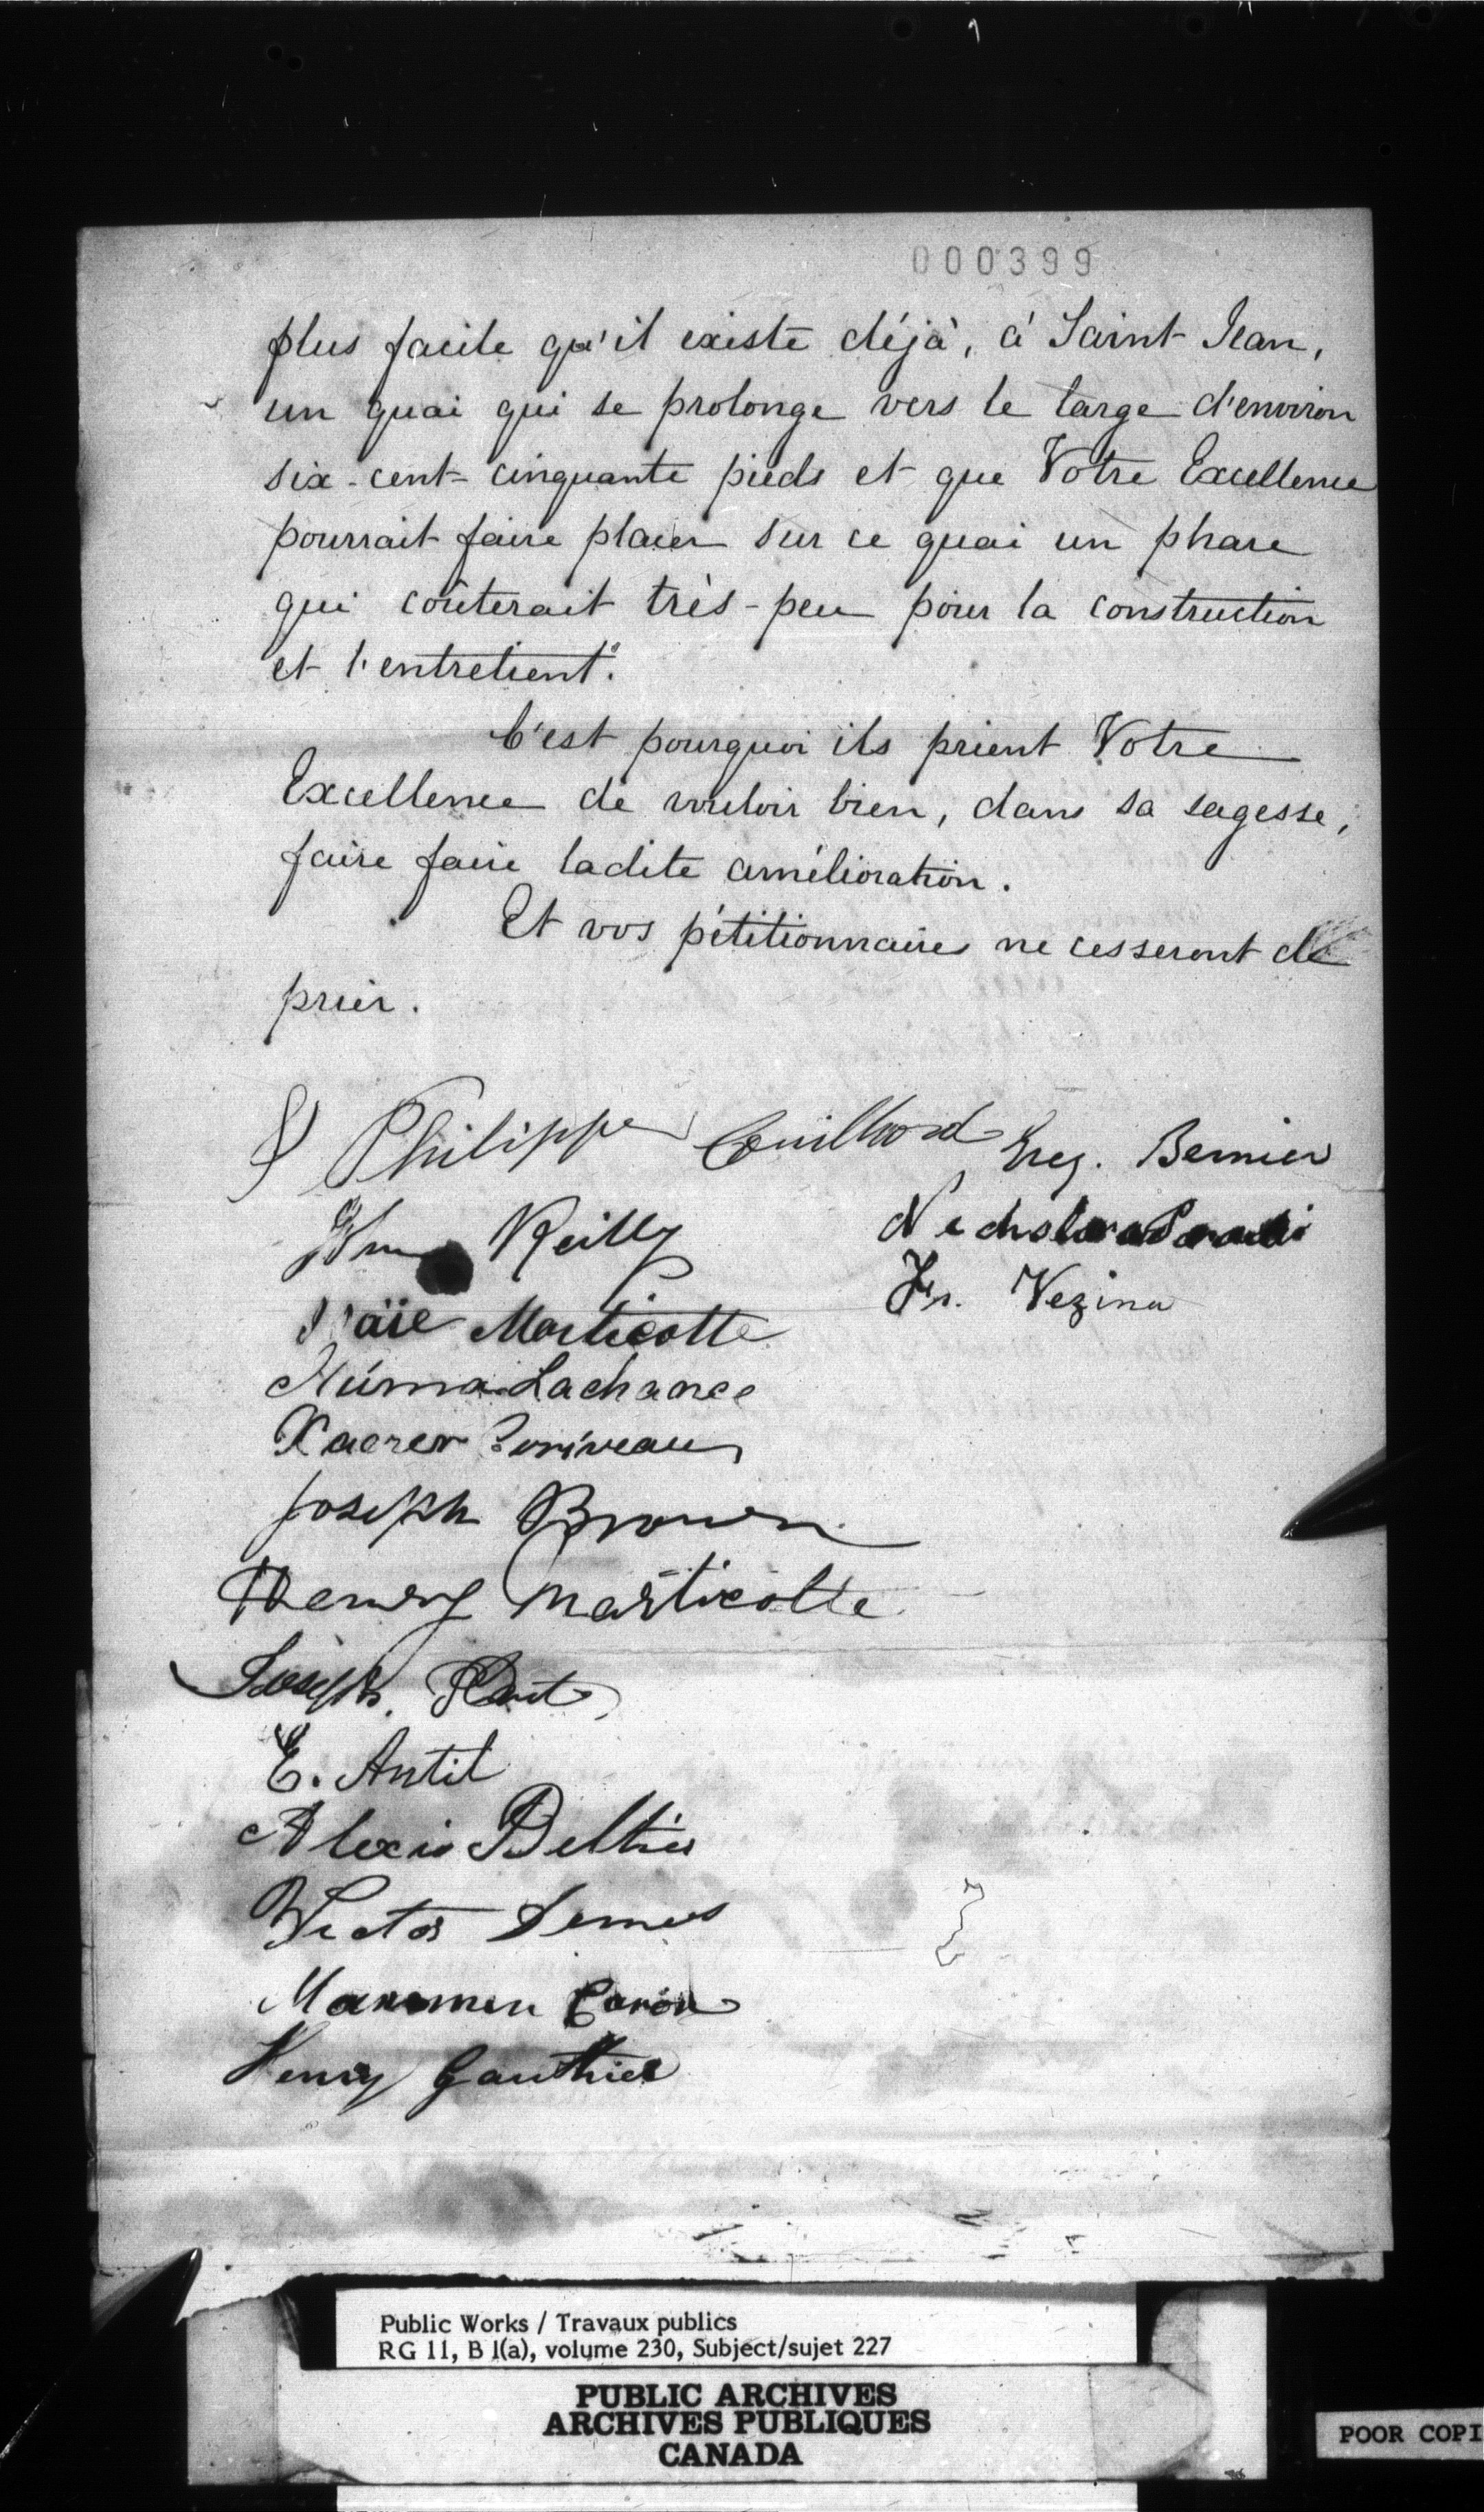 000399
plus facile qu'il existe déjà, à Saint Jean,
un quai qui se prolonge vers le large d'environ
six-cent-cinquante pieds et que Votre Excellence
pourrait faire placer sur ce quai un phare
qui coûterait très-peu pour la construction
et l'entretient".
C'est pourquoi ils prient Votre
Excellence de vouloir bien, dans sa sagesse,
faire faire ladite amélioration.
Et vos pétitionnaires ne cesseront de
prier.
Philippe Couillard
Greg. Bernier
Reilly
Marticotte
Fr. Vezina
Núma Lachance
Joseph Brown
Henry Marticotte
Joseph
E. Antil
Alexis Peltier
Victor
Caron
Henry Gauthier
Public Works / Travaux publics
RG 11, B 1(a), volume 230, Subject/sujet 227
PUBLIC ARCHIVES
ARCHIVES PUBLIQUES
CANADA
POOR COPI